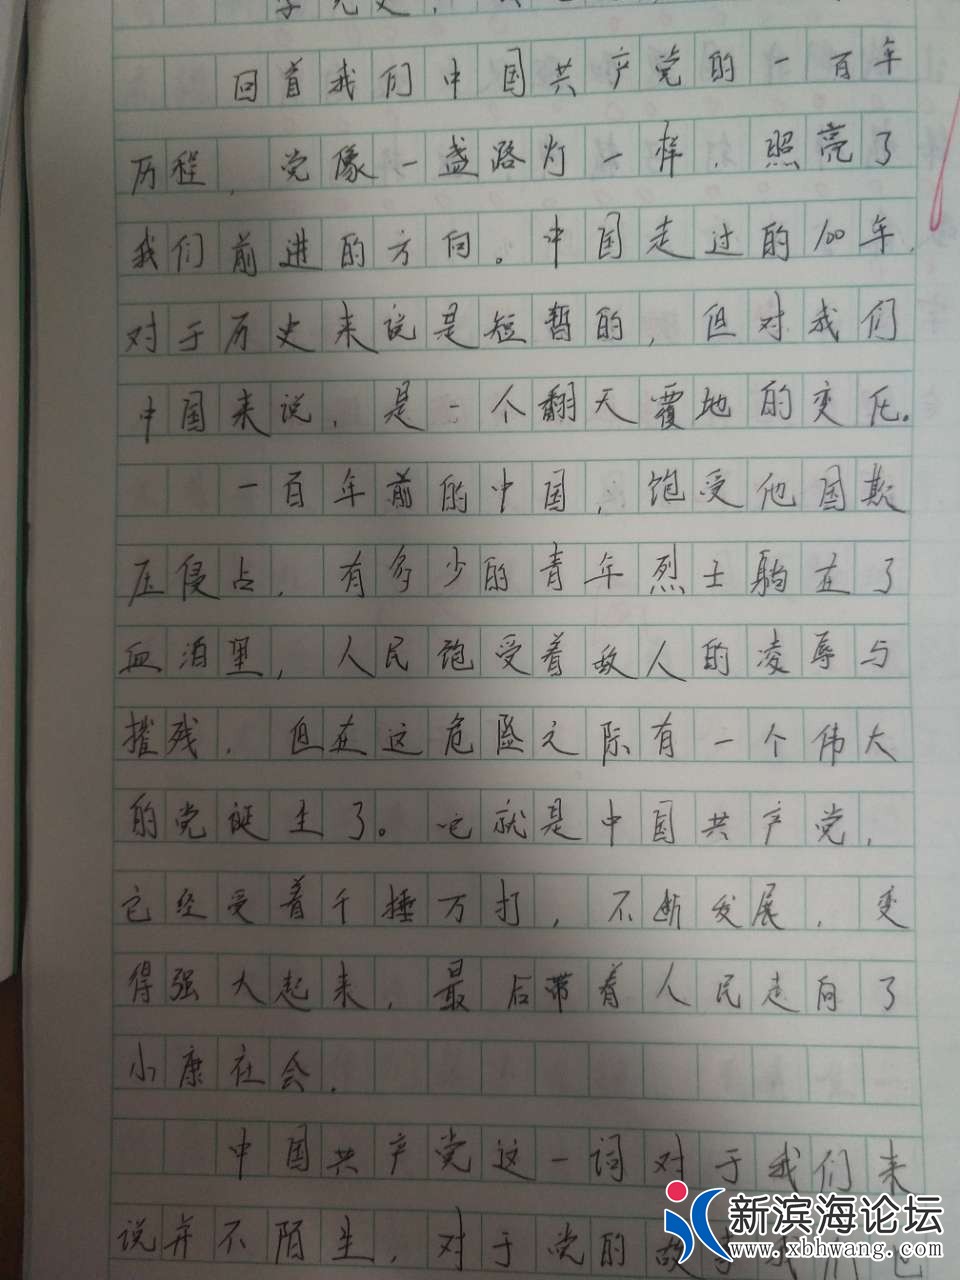 学党史，
回首我们中国共产党的一百年
历程，党像一盏路灯一样，照亮了
我们前进的方向。中国走过的100年，
对于历史来说是短暂的，但对我们
中国来说，是一个翻天覆地的变化。
一百年前的中国，饱受他国欺
压侵占，有多少的青年烈士躺在了
血泊里，人民饱受着敌人的凌辱与
摧残，但在这危险之际有一个伟大
的党诞生了。它就是中国共产党，
它经受着千捶万打，不断发展，变
得强大起来，最后带着人民走向了
小康社会.
中国共产党这一词对于我们来
说并不陌生，对于党的故事我们也
新滨海论坛
www.xbhwang.com